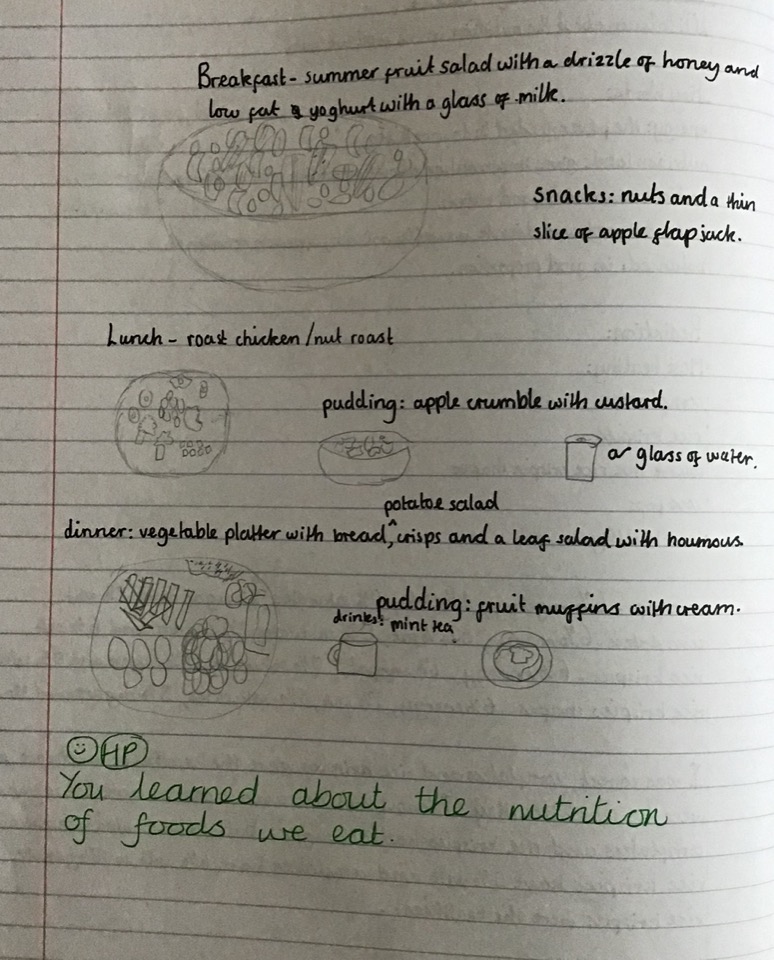 Breakfast - summer fruit salad with a drizzle of honey and
low fat yoghurt with a glass of milk.
snacks: nuts and a thin
slice of apple flap jack.
Lunch - roast chicken / nut roast
pudding: apple crumble with custard.
a glass of water.
potatoe salad
dinner: vegetable platter with bread, ^ crisps and a leaf salad with houmous.
pudding: fruit muffins with cream.
drinks: mint tea
HP
You learned about the nutrition
of foods we eat.